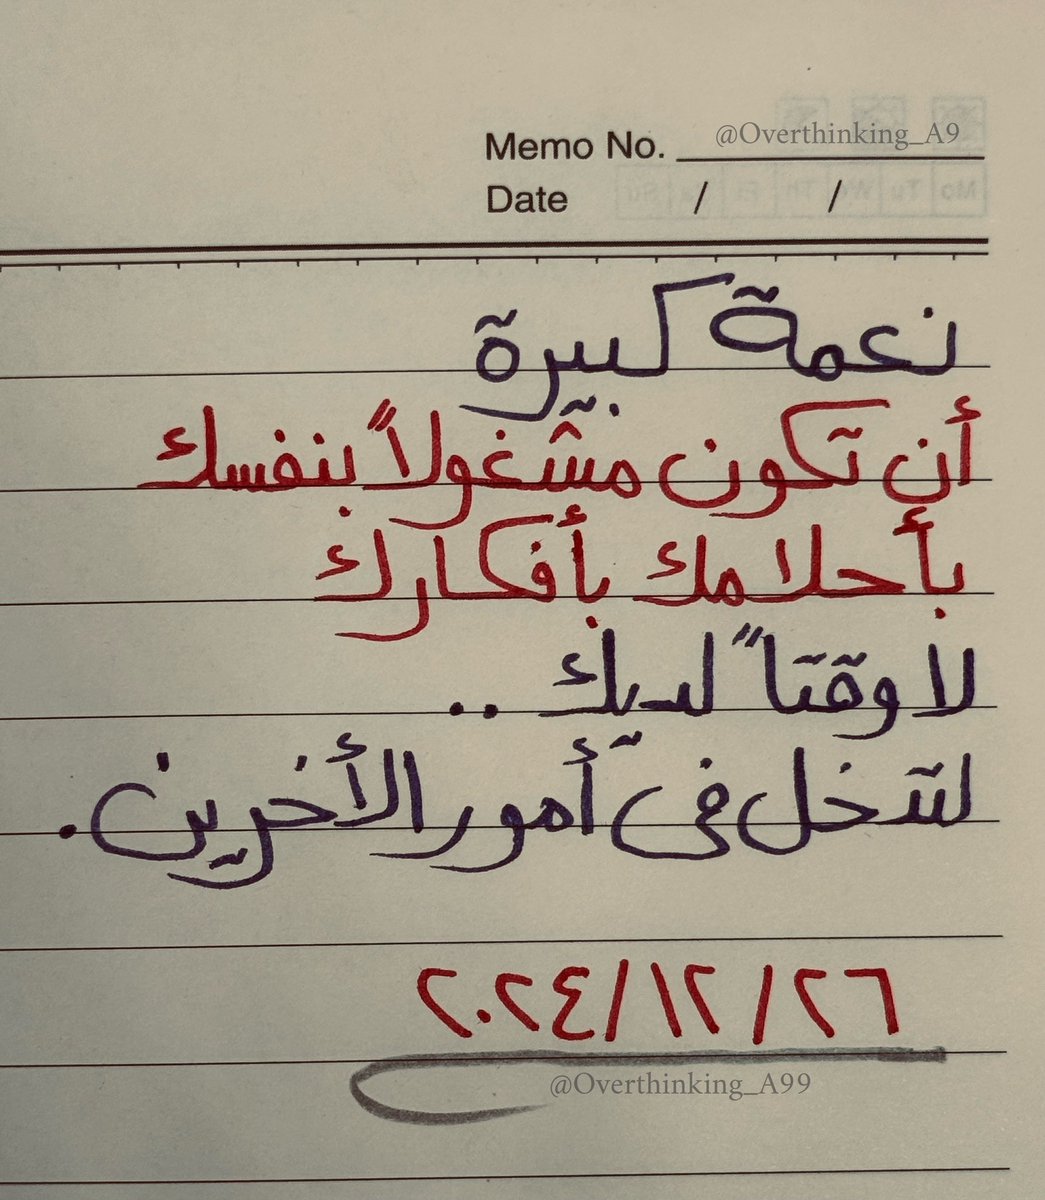 @Overthinking_A9
Memo No.
Date / /
نعمة كبيرة
أن تكون مشغولاً بنفسك
بأحلامك بأفكارك
لا وقتاً لديك ..
لتدخل في أمور الأخرين.
٢٠٢٤/١٢/٢٦
@Overthinking_A99